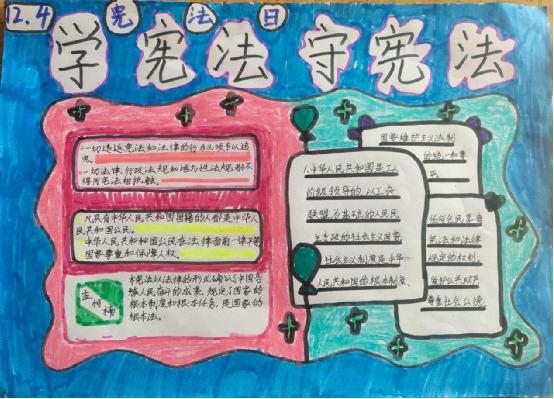 12.4 宪法日
学宪法 守宪法
一切违返宪法和法律的行为必须予以追
究。
一切法律、行政法规和地方性法规都不
得同宪法相抵触。
凡具有中华人民共和国国籍的人都是中华人
民共和国公民。
中华人民共和和国公民在法律面前一律平等
国家尊重和保障人权。
本宪法以法律的形式确认了中国各
族人民奋斗的成果,规定了国家的
根本制度和根本任务,是国家的
根本法。
中华人民共和国是工人
阶级领导的以工农
联盟为基础的人民民
主专政的社会主义国家
社会主义制度是中华人
民共和国的根本制度.
国家维护社会主义法制
的统一和尊
任何公民享有
宪法和法律
规定的权利
爱护公共财产
尊重社会公德